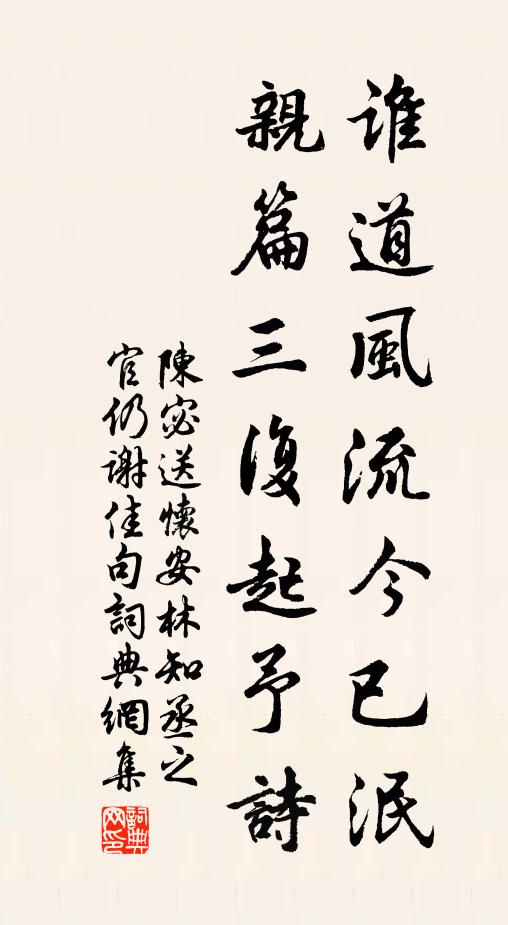 誰道風流今已泯
親篇三復起予詩
陳宓送懷安林知丞之
官仍謝佳句詞典網集
詞典網印